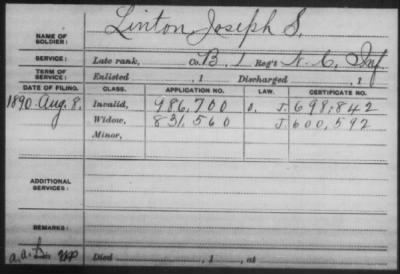 NAME OF SOLDIER: Linton, Joseph S.
SERVICE: Late rank, Co. B, 1 Reg't N. C. Inf
TERM OF SERVICE: Enlisted , 1 Discharged , 1
DATE OF FILING. CLASS. APPLICATION NO. LAW. CERTIFICATE NO.
1890. Aug. 8, Invalid, 986,700 J. 698,842
Widow, 831,560 J. 600,592
Minor,
ADDITIONAL SERVICES:
REMARKS:
Died , 1 , at